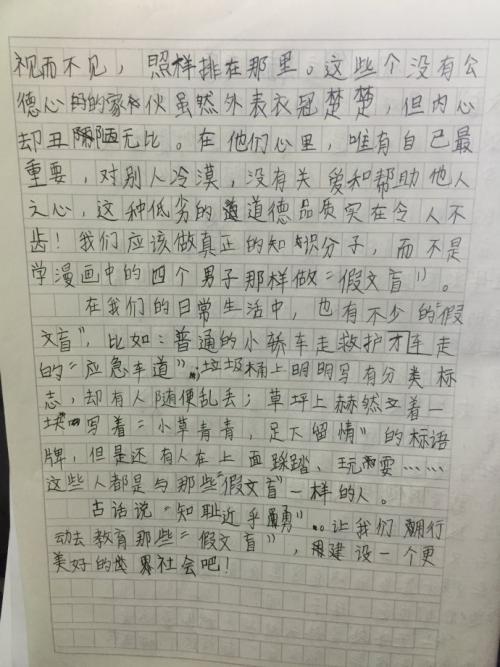 视而不见，照样排在那里。这些个没有公
德心的家伙虽然外表衣冠楚楚，但内心
却丑陋无比。在他们心里，唯有自己最
重要，对别人冷漠，没有关爱和帮助他人
之心，这种低劣的道德品质实在令人不
齿！我们应该做真正的知识分子，而不是
学漫画中的四个男子那样做“假文盲”。
在我们的日常生活中，也有不少的“假
文盲”，比如：普通的小轿车走救护车走
的“应急车道”，垃圾桶上明明写有分类标
志，却有人随便乱丢；草坪上赫然立着一
块写着“小草青青，足下留情”的标语
牌，但是还有人在上面踩踏、玩耍……
这些人都是与那些“假文盲”一样的人。
古话说“知耻近乎勇”。让我们用行
动去教育那些“假文盲”，建设一个更
美好的社会吧！